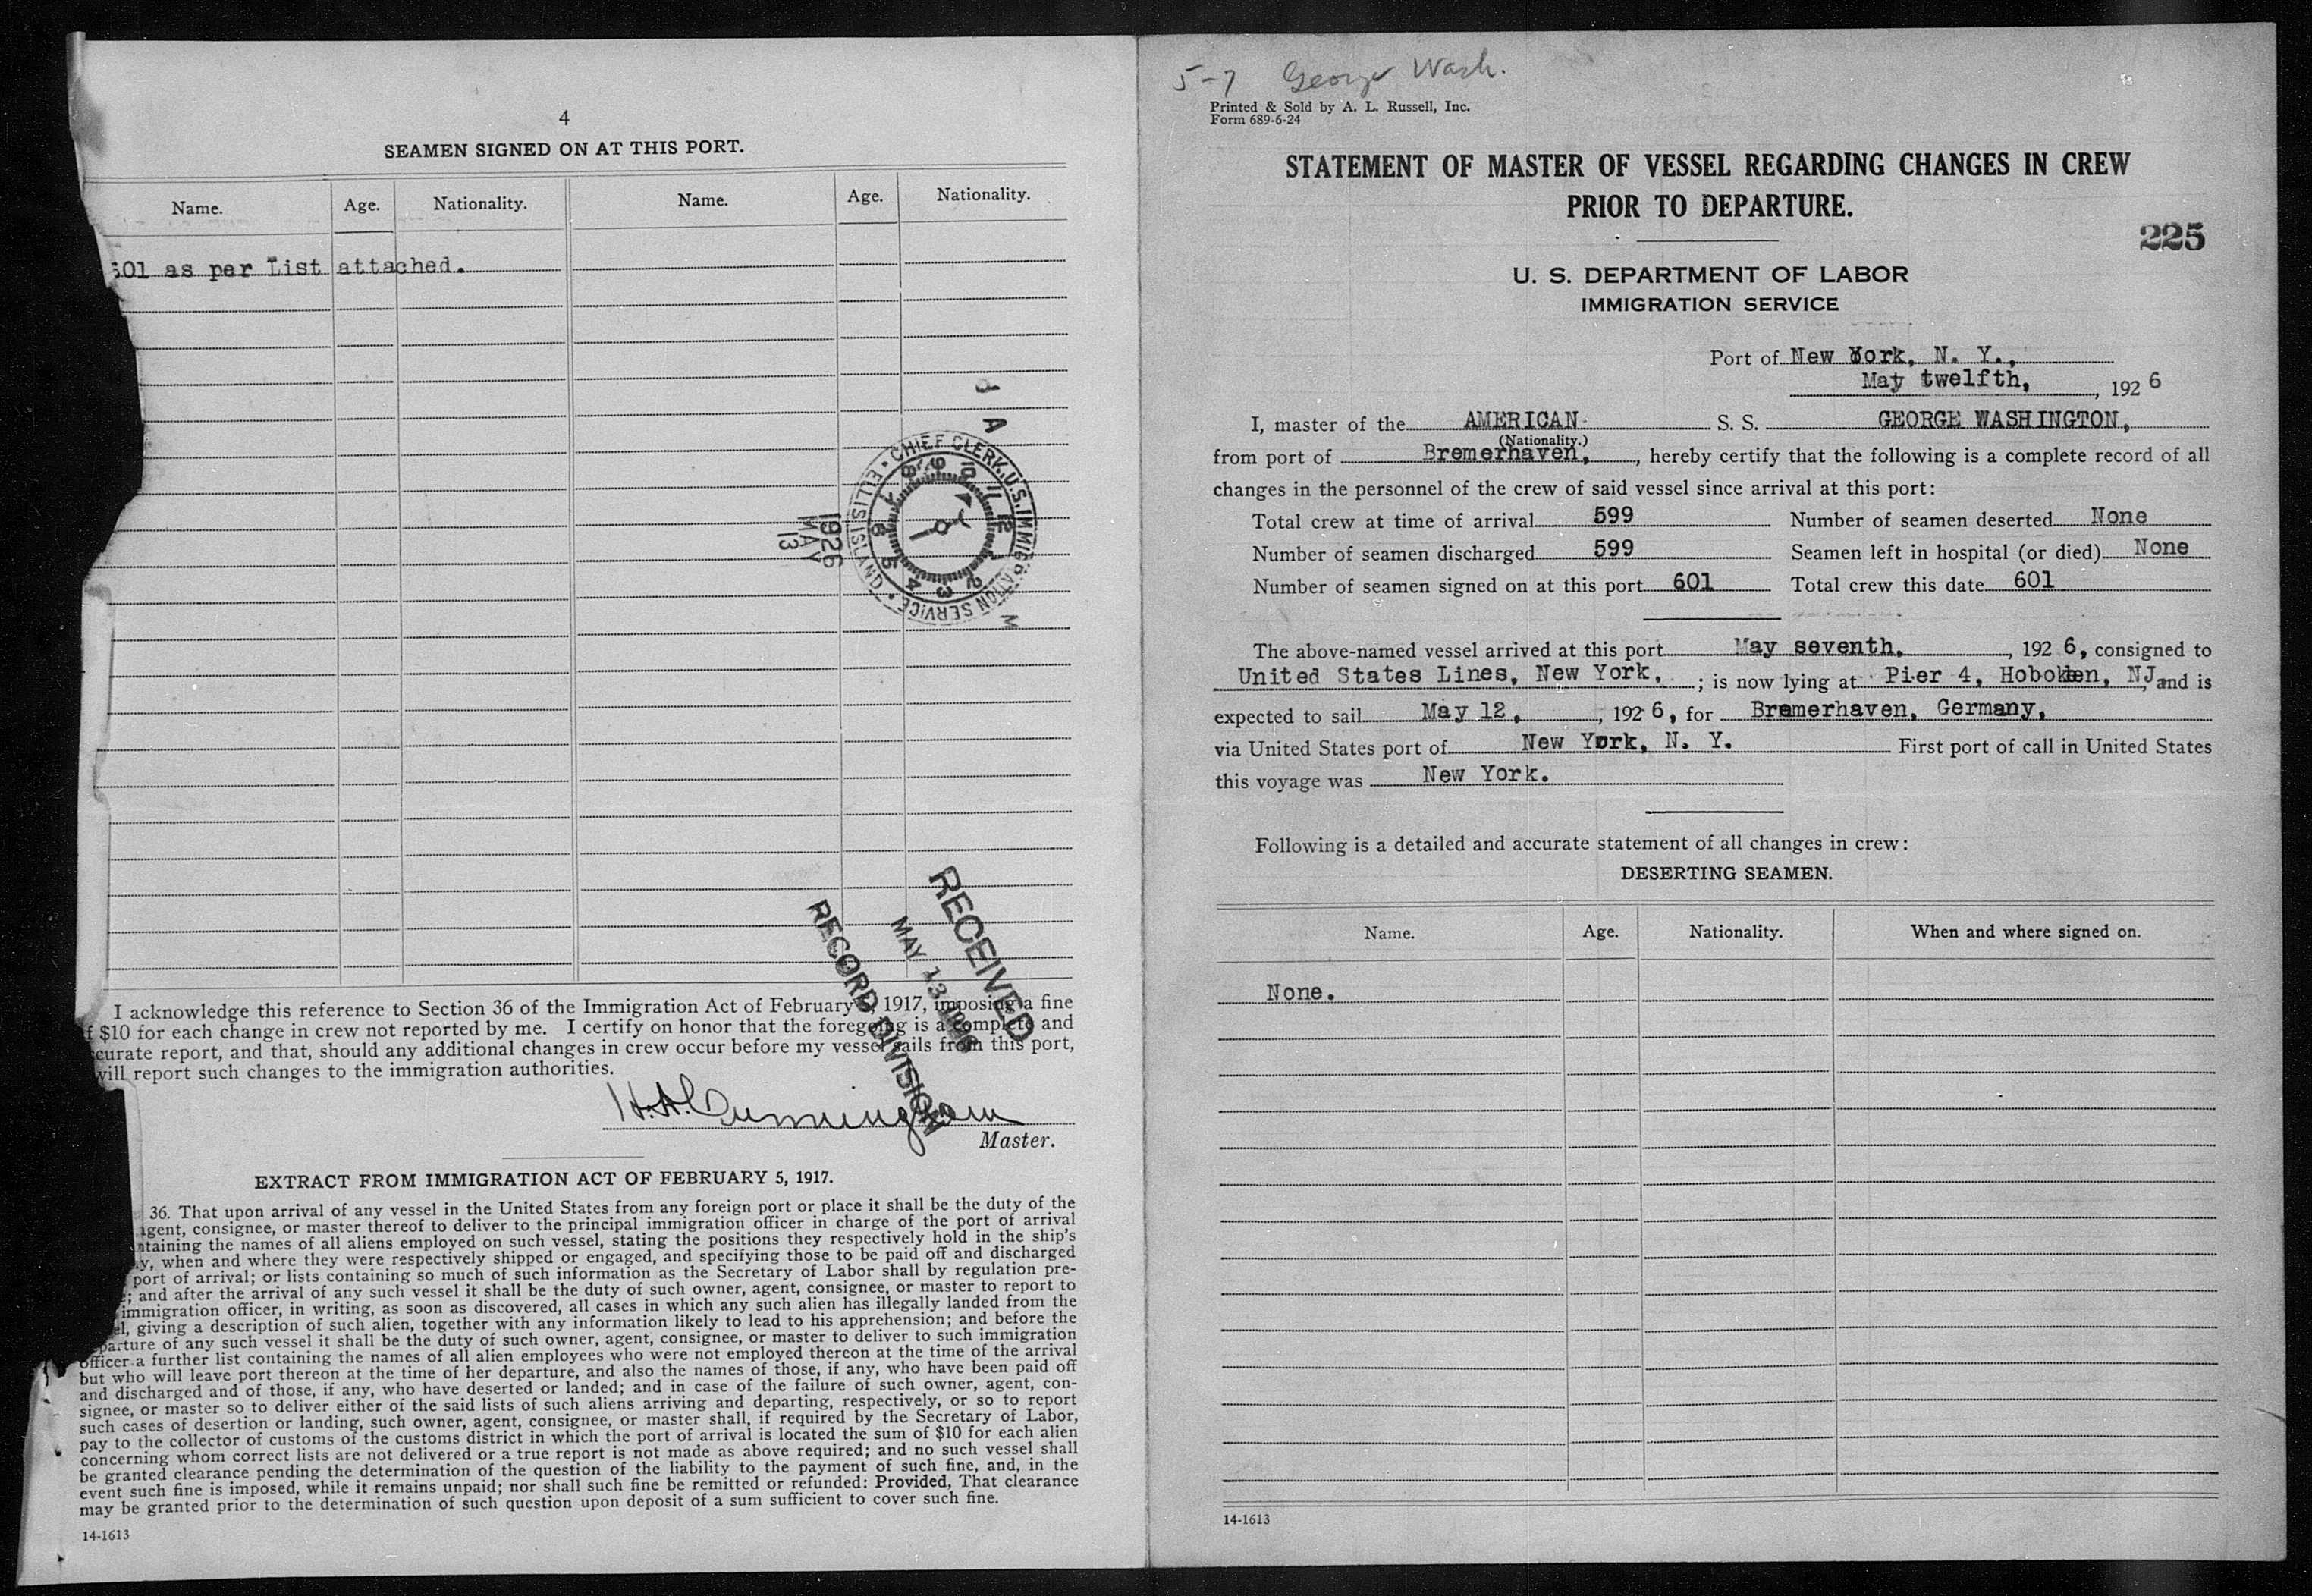 4
SEAMEN SIGNED ON AT THIS PORT.
Name. Age. Nationality. Name. Age. Nationality.
601 as per List attached.
CHIEF CLERK, U.S. IMMIGRATION SERVICE • ELLIS ISLAND •
1926
MAY
13
RECEIVED
MAY 13 1926
RECORD DIVISION
I acknowledge this reference to Section 36 of the Immigration Act of February 5, 1917, imposing a fine
f $10 for each change in crew not reported by me. I certify on honor that the foregoing is a complete and
curate report, and that, should any additional changes in crew occur before my vessel sails from this port,
will report such changes to the immigration authorities.
H. A. Cunningham
Master.
EXTRACT FROM IMMIGRATION ACT OF FEBRUARY 5, 1917.
36. That upon arrival of any vessel in the United States from any foreign port or place it shall be the duty of the
agent, consignee, or master thereof to deliver to the principal immigration officer in charge of the port of arrival
ntaining the names of all aliens employed on such vessel, stating the positions they respectively hold in the ship's
y, when and where they were respectively shipped or engaged, and specifying those to be paid off and discharged
port of arrival; or lists containing so much of such information as the Secretary of Labor shall by regulation pre-
e; and after the arrival of any such vessel it shall be the duty of such owner, agent, consignee, or master to report to
immigration officer, in writing, as soon as discovered, all cases in which any such alien has illegally landed from the
el, giving a description of such alien, together with any information likely to lead to his apprehension; and before the
parture of any such vessel it shall be the duty of such owner, agent, consignee, or master to deliver to such immigration
officer a further list containing the names of all alien employees who were not employed thereon at the time of the arrival
but who will leave port thereon at the time of her departure, and also the names of those, if any, who have been paid off
and discharged and of those, if any, who have deserted or landed; and in case of the failure of such owner, agent, con-
signee, or master so to deliver either of the said lists of such aliens arriving and departing, respectively, or so to report
such cases of desertion or landing, such owner, agent, consignee, or master shall, if required by the Secretary of Labor,
pay to the collector of customs of the customs district in which the port of arrival is located the sum of $10 for each alien
concerning whom correct lists are not delivered or a true report is not made as above required; and no such vessel shall
be granted clearance pending the determination of the question of the liability to the payment of such fine, and, in the
event such fine is imposed, while it remains unpaid; nor shall such fine be remitted or refunded: Provided, That clearance
may be granted prior to the determination of such question upon deposit of a sum sufficient to cover such fine.
14-1613
5-7 George Wash.
Printed & Sold by A. L. Russell, Inc.
Form 689-6-24
STATEMENT OF MASTER OF VESSEL REGARDING CHANGES IN CREW
PRIOR TO DEPARTURE.
225
U. S. DEPARTMENT OF LABOR
IMMIGRATION SERVICE
Port of New York, N. Y.,
May twelfth, , 1926
I, master of the AMERICAN S. S. GEORGE WASHINGTON,
(Nationality.)
from port of Bremerhaven, , hereby certify that the following is a complete record of all
changes in the personnel of the crew of said vessel since arrival at this port:
Total crew at time of arrival 599 Number of seamen deserted None
Number of seamen discharged 599 Seamen left in hospital (or died) None
Number of seamen signed on at this port 601 Total crew this date 601
The above-named vessel arrived at this port May seventh. , 1926, consigned to
United States Lines, New York, ; is now lying at Pier 4, Hoboken, NJ, and is
expected to sail May 12, , 1926, for Bremerhaven, Germany,
via United States port of New York, N. Y. First port of call in United States
this voyage was New York.
Following is a detailed and accurate statement of all changes in crew:
DESERTING SEAMEN.
Name. Age. Nationality. When and where signed on.
None.
14-1613